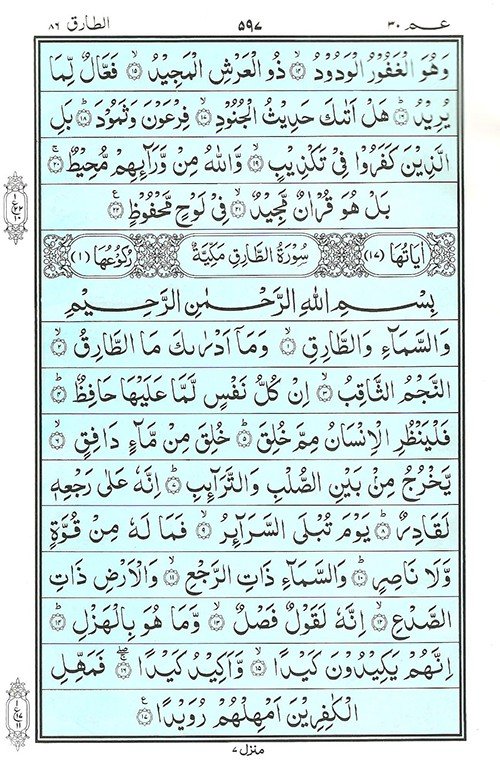 الطارق ٨٦ ٥٩٧ عم ٣٠
وَهُوَ الْغَفُوْرُ الْوَدُوْدُ ۙ‏﴿۱۴﴾ ذُو الْعَرْشِ الْمَجِيْدُ ۙ‏﴿۱۵﴾ فَعَّالٌ لِّمَا
يُرِيْدُ ؕ‏﴿۱۶﴾ هَلْ اَتٰٮكَ حَدِيْثُ الْجُنُوْدِ ۙ‏﴿۱۷﴾ فِرْعَوْنَ وَثَمُوْدَ ؕ‏﴿۱۸﴾ بَلِ
الَّذِيْنَ كَفَرُوْا فِىْ تَكْذِيْبٍ ۙ‏﴿۱۹﴾ وَّاللّٰهُ مِنْ وَّرَآٮِٕهِمْ مُّحِيْطٌ ۚ‏﴿۲۰﴾
بَلْ هُوَ قُرْاٰنٌ مَّجِيْدٌ ۙ‏﴿۲۱﴾ فِىْ لَوْحٍ مَّحْفُوْظٍ ﴿۲۲﴾
اٰيَاتُهَا (١٧) سُوْرَةُ الطَّارِقِ مَكِّيَّةٌ رُكُوْعُهَا (١)
بِسْمِ اللّٰهِ الرَّحْمٰنِ الرَّحِيْمِ
وَالسَّمَآءِ وَالطَّارِقِ ۙ‏﴿۱﴾ وَمَاۤ اَدْرٰٮكَ مَا الطَّارِقُ ۙ‏﴿۲﴾
النَّجْمُ الثَّاقِبُ ۙ‏﴿۳﴾ اِنْ كُلُّ نَفْسٍ لَّمَّا عَلَيْهَا حَافِظٌ ؕ‏﴿۴﴾
فَلْيَنْظُرِ الْاِنْسَانُ مِمَّ خُلِقَ ؕ‏﴿۵﴾ خُلِقَ مِنْ مَّآءٍ دَافِقٍ ۙ‏﴿۶﴾
يَّخْرُجُ مِنْۢ بَيْنِ الصُّلْبِ وَالتَّرَآٮِٕبِ ؕ‏﴿۷﴾ اِنَّهٗ عَلٰى رَجْعِهٖ
لَقَادِرٌ ؕ‏﴿۸﴾ يَوْمَ تُبْلَى السَّرَآٮِٕرُ ۙ‏﴿۹﴾ فَمَا لَهٗ مِنْ قُوَّةٍ
وَّلَا نَاصِرٍ ؕ‏﴿۱۰﴾ وَالسَّمَآءِ ذَاتِ الرَّجْعِ ۙ‏﴿۱۱﴾ وَالْاَرْضِ ذَاتِ
الصَّدْعِ ۙ‏﴿۱۲﴾ اِنَّهٗ لَقَوْلٌ فَصْلٌ ۙ‏﴿۱۳﴾ وَّمَا هُوَ بِالْهَزْلِ ؕ‏﴿۱۴﴾
اِنَّهُمْ يَكِيْدُوْنَ كَيْدًا ۙ‏﴿۱۵﴾ وَّاَكِيْدُ كَيْدًا ‏﴿۱۶﴾ فَمَهِّلِ
الْكٰفِرِيْنَ اَمْهِلْهُمْ رُوَيْدًا ‏﴿۱۷﴾
منزل ٧